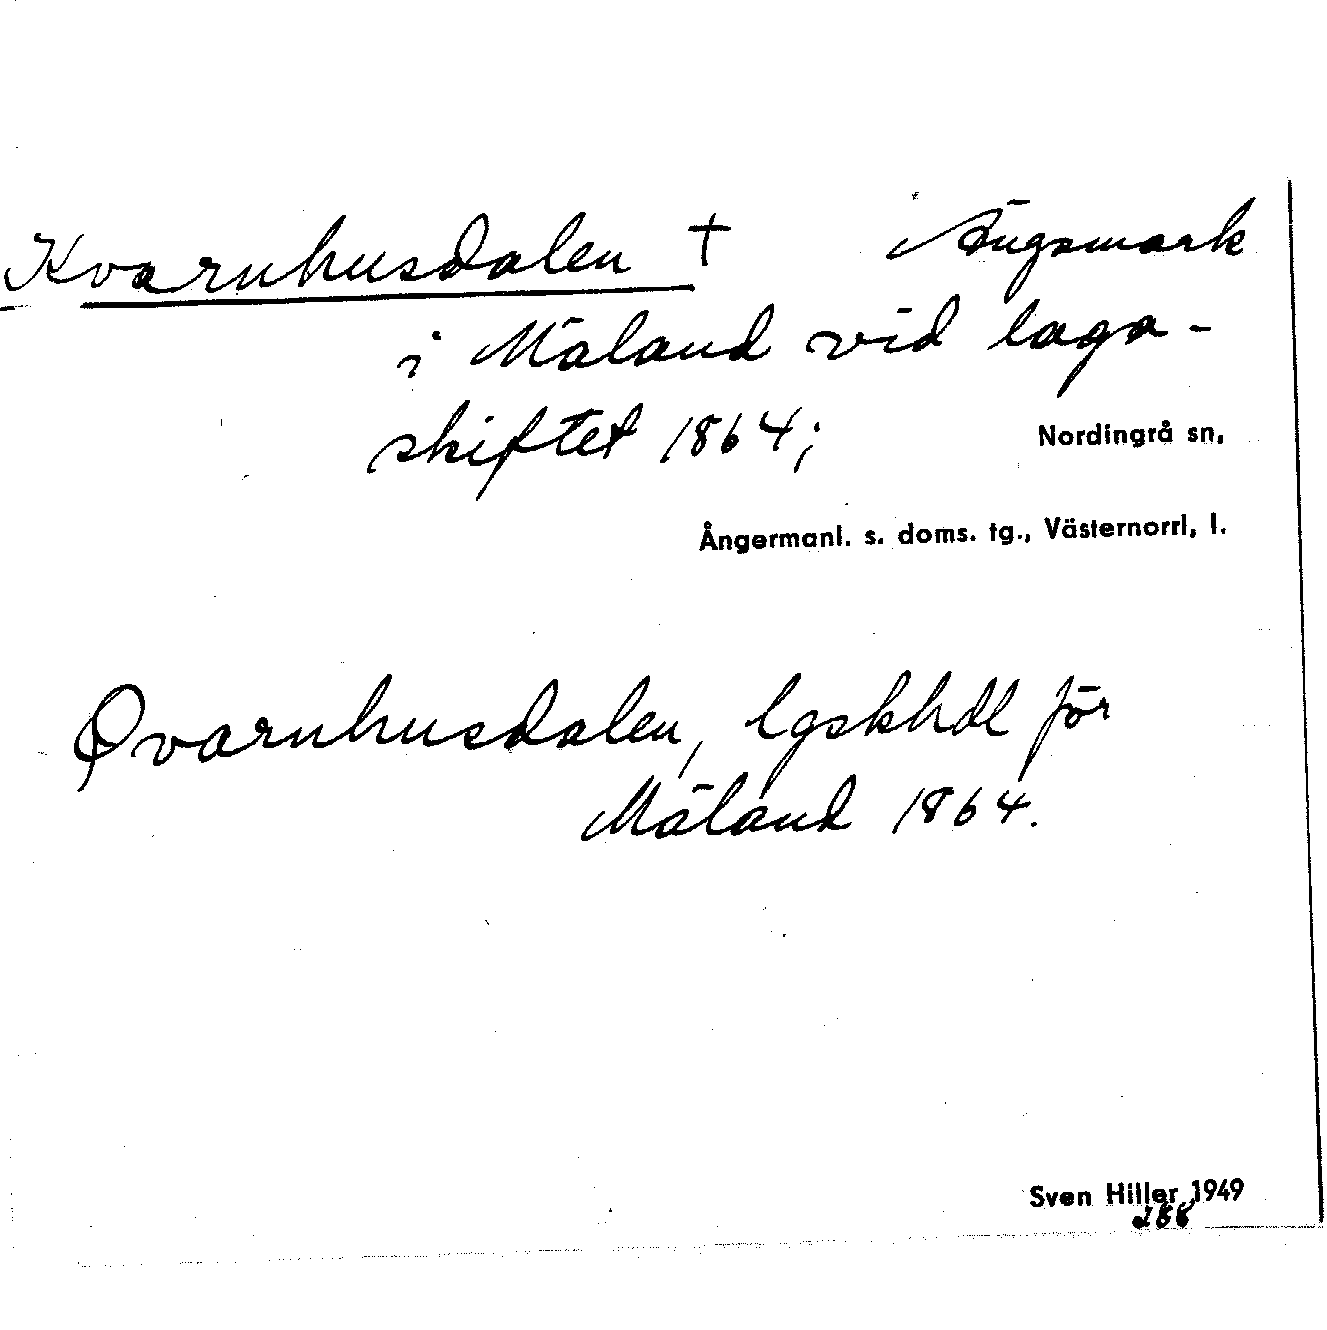 Kvarnhusdalen † Ängsmark
i Mäland vid laga-
skiftet 1864;
Nordingrå sn,
Ångermanl. s. doms. tg., Västernorrl, l.
Qvarnhusdalen, lgskhdl för
Mäland 1864.
Sven Hiller 1949